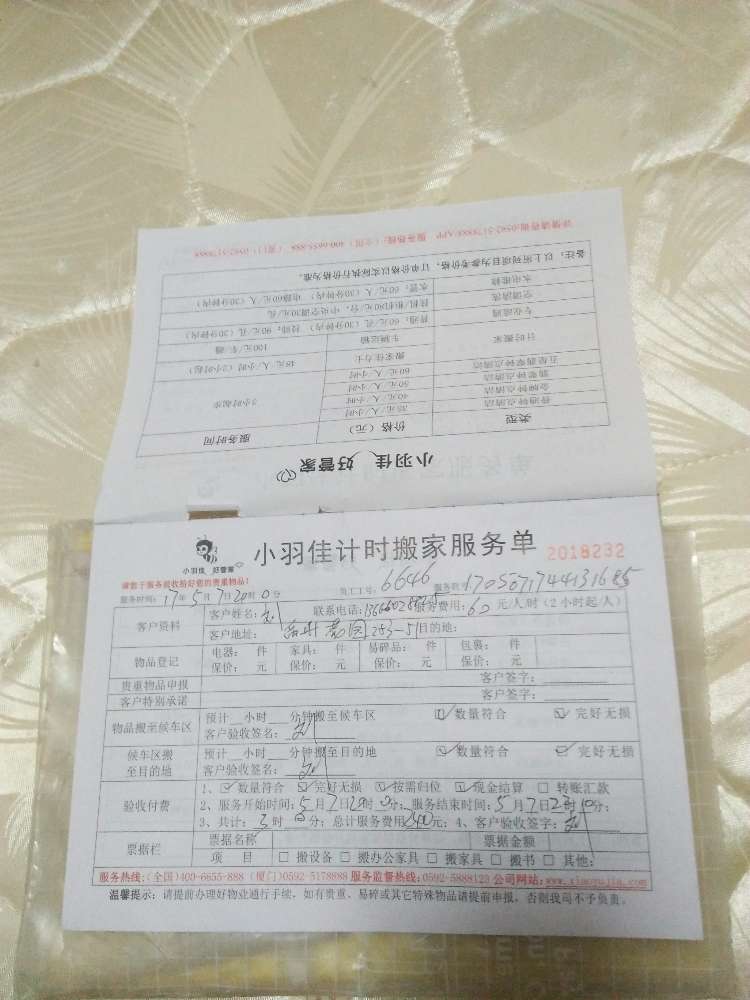 小羽佳 好管家
类型 价格（元） 服务时间
普通钟点清洁 35元/人/小时 2小时起步
金牌钟点清洁 40元/人/小时
翡翠钟点清洁 50元/人/小时
五星翡翠钟点清洁 60元/人/小时
计时搬家 搬家佳力士 48元/人/小时（2小时起）
车辆运输 100元/车/趟
专业疏通 普通：60元/孔（30分钟内） 特殊：90元/孔
空调清洗
水电维修 水管：60元/人（30分钟内） 电路60元/人（30分钟内）
备注：以上所列项目为参考价格，订单价格以实际执行价格为准。
服务热线：（全国）400-6655-888（厦门）0592-5178888
小羽佳 好管家
小羽佳计时搬家服务单 2018232
请您于服务前收拾好您的贵重物品！
服务时间：17年5月7日20时0分 员工工号：6646 服务单号
客户资料 客户姓名： 联系电话： 服务费用：60元/人/时（2小时起/人）
客户地址： 253-51 目的地：
物品登记 电器： 件 家具： 件 易碎品： 件 包裹： 件
保价： 元 保价： 元 保价： 元 保价： 元
贵重物品申报 客户签字：
客户特别承诺 客户签字：
物品搬至候车区 预计__小时__分钟搬至候车区 数量符合 完好无损
客户验收签名：
候车区搬至目的地 预计__小时__分钟搬至目的地 数量符合 完好无损
客户验收签名：
验收付费 1、数量符合 完好无损 按需归位 现金结算 转账汇款
2、服务开始时间：5月7日20时0分；服务结束时间：5月7日23时10分；
3、共计：3时 分；总计服务费用 元；4、客户验收签字：
票据栏 票据名称 票据金额
项 目 □ 搬设备 □ 搬办公家具 □ 搬家具 □ 搬书 □ 其他：
服务热线：（全国）400-6655-888（厦门）0592-5178888 服务监督热线：0592-5888123 公司网站：www.xiaoyujia.com
温馨提示：请提前办理好物业通行手续，如有贵重、易碎或其它特殊物品请提前申报，否则我司不予负责。